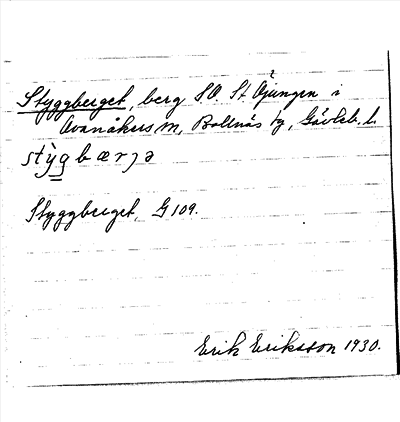 Styggberget, berg SO. St. Öjungen i
Ovanåkers sn, Bollnäs tg, Gävleb. l.
stỳg bærjə
Styggberget, G 109.
Erik Eriksson 1930.